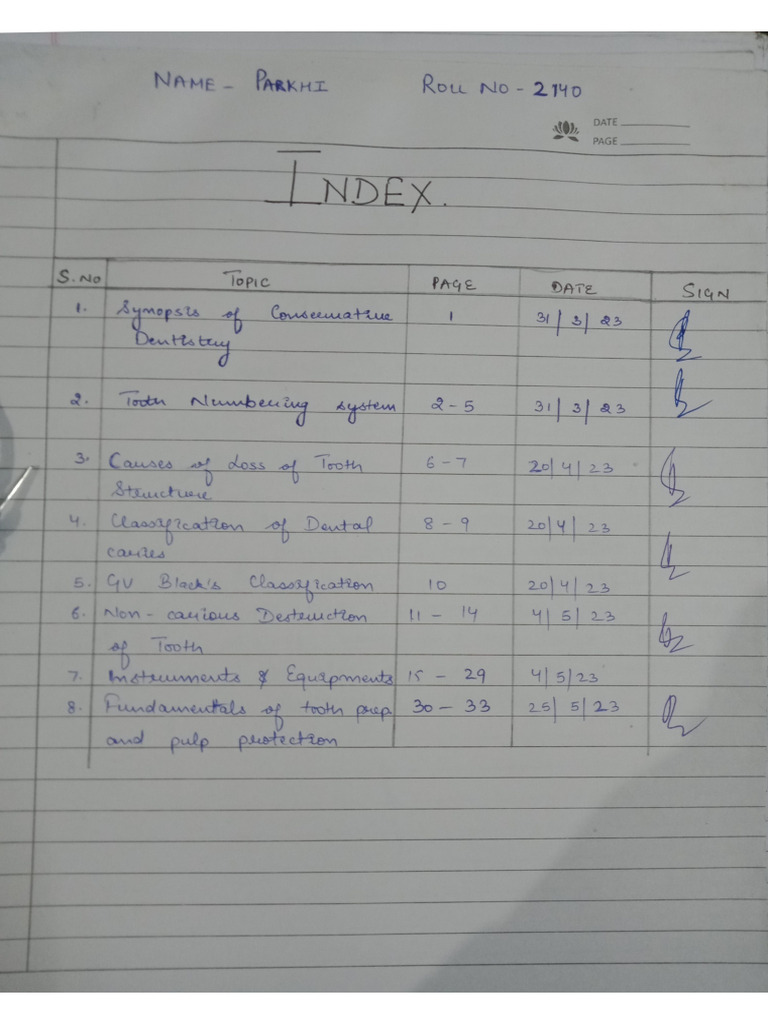 NAME - PARKHI ROLL NO - 2140
DATE
PAGE
INDEX.
S.NO TOPIC PAGE DATE SIGN
1. Synopsis of Conservative 1 31/3/23
Dentistry
2. Tooth Numbering system 2-5 31/3/23
3. Causes of Loss of Tooth 6-7 20/4/23
Structure
4. Classification of Dental 8-9 20/4/23
caries
5. GV Black's Classification 10 20/4/23
6. Non-carious Destruction 11-14 4/5/23
of Tooth
7. Instruments & Equipments 15-29 4/5/23
8. Fundamentals of tooth prep 30-33 25/5/23
and pulp protection